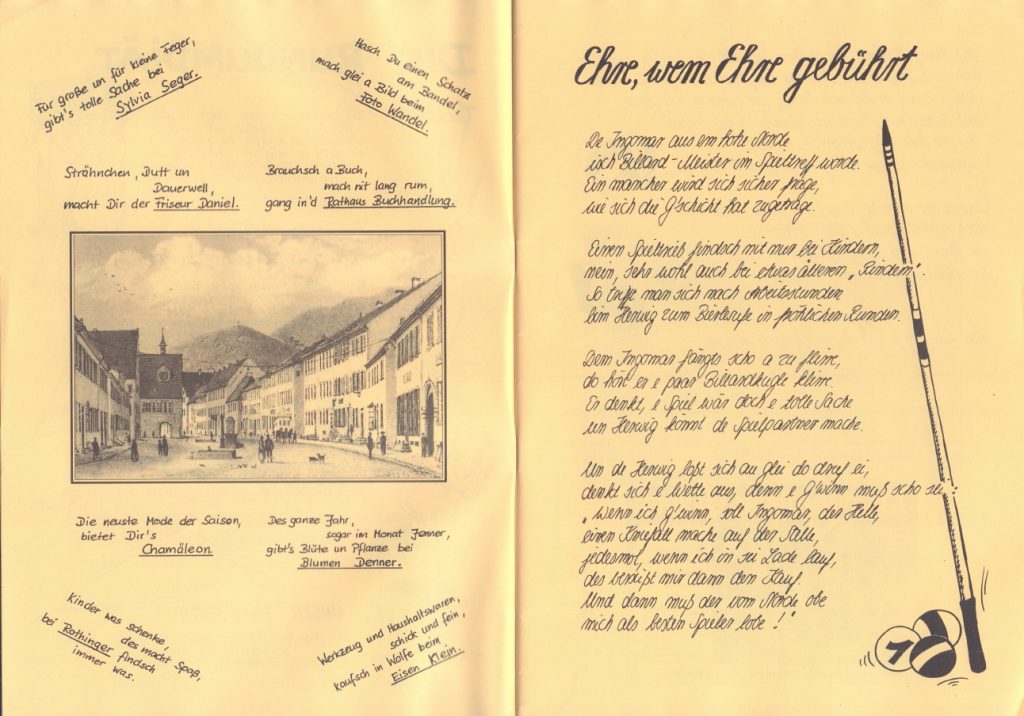 Für große un für kleine Feger,
gibt's tolle Sache bei
Sylvia Seger.
Hasch Du einen Schatz
am Bandel,
mach glei a Bild beim
Foto Wandel.
Strähnchen, Dutt un
Dauerwell,
macht Dir der Friseur Daniel.
Brauchsch a Buch,
mach nit lang rum,
gang in'd Rathaus Buchhandlung.
Die neuste Mode der Saison,
bietet Dir's
Chamäleon.
Des ganze Jahr,
sogar im Monat Jenner,
gibt's Blüte un Pflanze bei
Blumen Denner.
Kinder was schenke,
des macht Spaß,
bei Rothinger findsch
immer was.
Werkzeug und Haushaltswaren,
schick und fein,
kaufsch in Wolfe beim
Eisen Klein.
Ehre, wem Ehre gebührt
De Ingomar aus em hohe Norde
isch Billard-Meister im Spieltreff worde.
Ein mancher wird sich sicher frage,
wie sich die G'schicht hat zugetrage.
Einen Spieltrieb findsch nit nur bei Kindern,
nein, sehr wohl auch bei etwas älteren „Rindern“
So trifft man sich nach Arbeitsstunden
beim Herwig zum Bierlerufe in fröhlichen Runden.
Dem Ingomar fängts scho a zu flirre,
do hört er e paar Billardkugle klirre.
Er denkt, e Spiel wär doch e tolle Sache
un Herwig könnt de Spielpartner mache.
Un de Herwig loßt sich au glei do druf ei,
denkt sich e Wette aus, denn e G'winn muß scho sei:
„Wenn ich g'winn, soll Ingomar, der Helle,
einen Kniefall mache auf der Stelle,
jedesmol, wenn ich in sei Lade lauf,
des versüßt mir dann den Kauf.
Und dann muß der vom Norde obe
mich als besten Spieler lobe!"
7